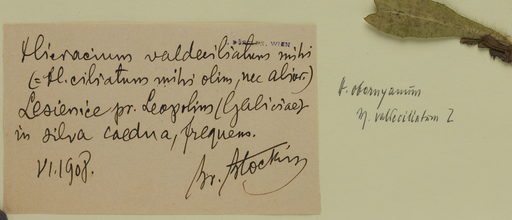 Hieracium valdeciliatum mihi
(= H. ciliatum mihi olim, nec alior.)
Lesienice pr. Leopolim (Galiciae)
in silva caedua, frequens.
VI.1908. Br. Błocki
H. obornyanum
η. valdeciliatum Z